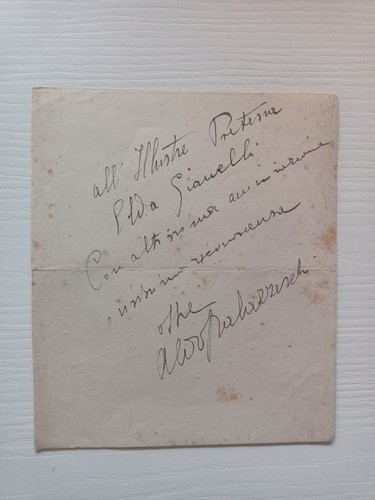 all' Illustre
Elda Gianelli
Con altissima ammirazione
vivissima riconoscenza
offre
Aldo Palazzeschi